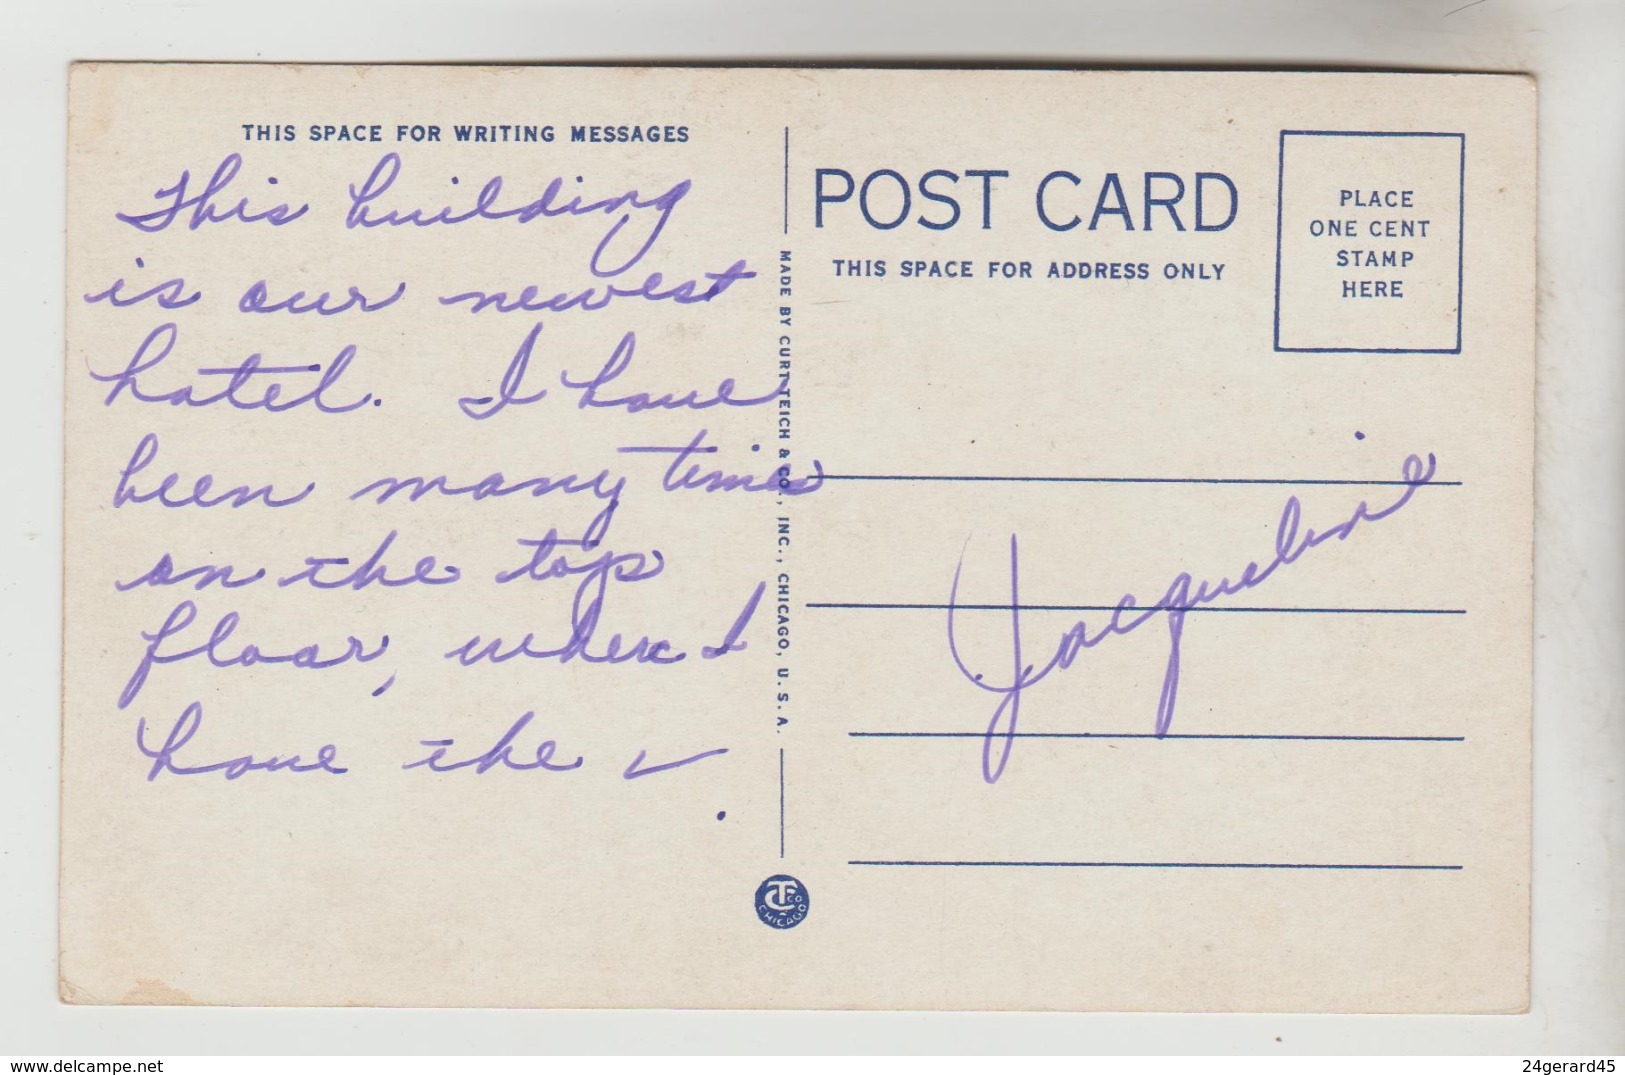 THIS SPACE FOR WRITING MESSAGES
This building
is our newest
hotel. I have
been many times
on the top
floor, where I
have the ✓.
MADE BY CURT TEICH & CO., INC., CHICAGO, U.S.A.
POST CARD
THIS SPACE FOR ADDRESS ONLY
PLACE
ONE CENT
STAMP
HERE
Jacqueline
CHICAGO
delcampe.net
24gerard45